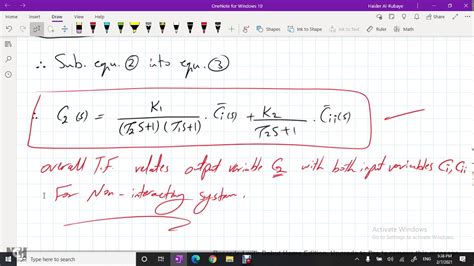 OneNote for Windows 10
Haider Al-Rubaye
Home Insert Draw View Help
∴ Sub. equ. ② into equ. ③
∴ C₂(s) = K₁ / ((τ₂s+1)(τ₁s+1)) · C̄i(s) + K₂ / (τ₂s+1) · C̄ii(s)
overall T.F relates output variable C₂ with both input variables Ci, Cii
For Non-interacting system.
Activate Windows
Go to Settings to activate Windows.
Type here to search
3:38 PM
2/7/2021